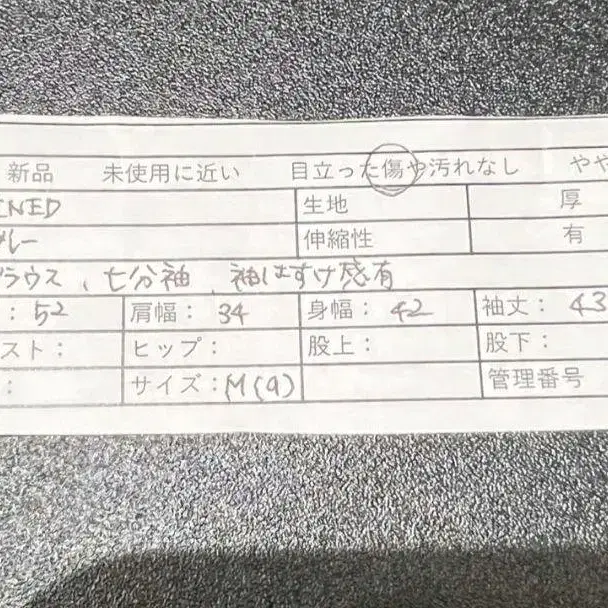 新品 未使用に近い 目立った傷や汚れなし やや
INED 生地 厚
グレー 伸縮性 有
ブラウス、七分袖、袖はすけ感有
: 52 肩幅: 34 身幅: 42 袖丈: 43
スト: ヒップ: 股上: 股下:
: サイズ: M(9) 管理番号